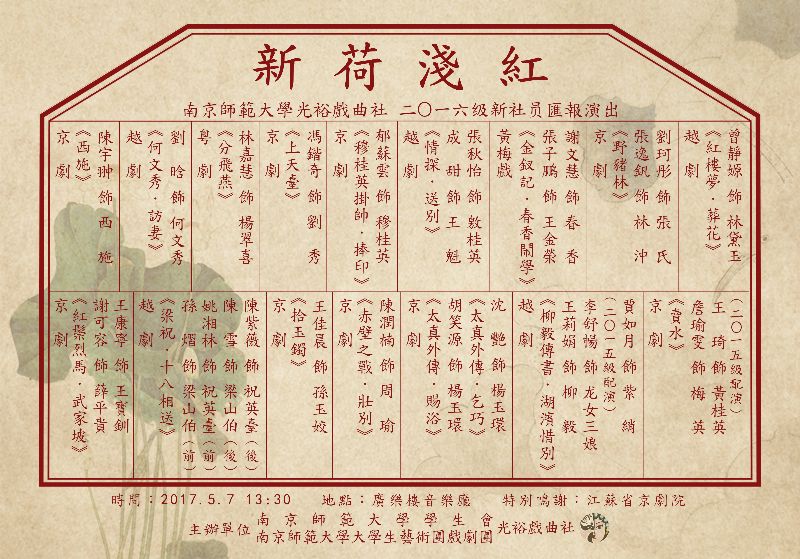 新荷淺紅
南京師範大學光裕戲曲社 二〇一六级新社员匯報演出
曾靜嫄 飾 林黛玉
《紅樓夢·葬花》
越劇
劉珂彤 飾 張氏
張逸釩 飾 林冲
《野豬林》
京劇
謝文慧 飾 春香
張子鵬 飾 王金榮
《金釵記·春香鬧學》
黃梅戲
張秋怡 飾 敫桂英
成甜 飾 王魁
《情探·送別》
越劇
郁蘇雲 飾 穆桂英
《穆桂英掛帥·捧印》
京劇
馮鍇奇 飾 劉秀
《上天臺》
京劇
林嘉慧 飾 楊翠喜
《分飛燕》
粵劇
劉晗 飾 何文秀
《何文秀·訪妻》
越劇
陳宇翀 飾 西施
《西施》
京劇
(二〇一五級配演)
王琦 飾 黃桂英
詹瑜雯 飾 梅英
《賣水》
京劇
賈如月 飾 紫綃
(二〇一五級配演)
李舒暢 飾 龙女三娘
王莉娟 飾 柳毅
《柳毅傳書·湖濱惜別》
越劇
沈艷 飾 楊玉環
《太真外傳·乞巧》
胡笑源 飾 楊玉環
《太真外傳·賜浴》
京劇
陳潤楠 飾 周瑜
《赤壁之戰·壯別》
京劇
王佳晨 飾 孫玉姣
《拾玉鐲》
京劇
陳紫薇 飾 祝英臺(後)
陳雪 飾 梁山伯(後)
姚湘林 飾 祝英臺(前)
孫熠 飾 梁山伯(前)
《梁祝·十八相送》
越劇
王康寧 飾 王寶釧
謝可容 飾 薛平貴
《紅鬃烈馬·武家坡》
京劇
時間：2017.5.7 13:30 地點：廣樂樓音樂廳 特別鳴謝：江蘇省京劇院
主辦單位 南京師範大學學生會
南京師範大學大學生藝術團戲劇團 光裕戲曲社